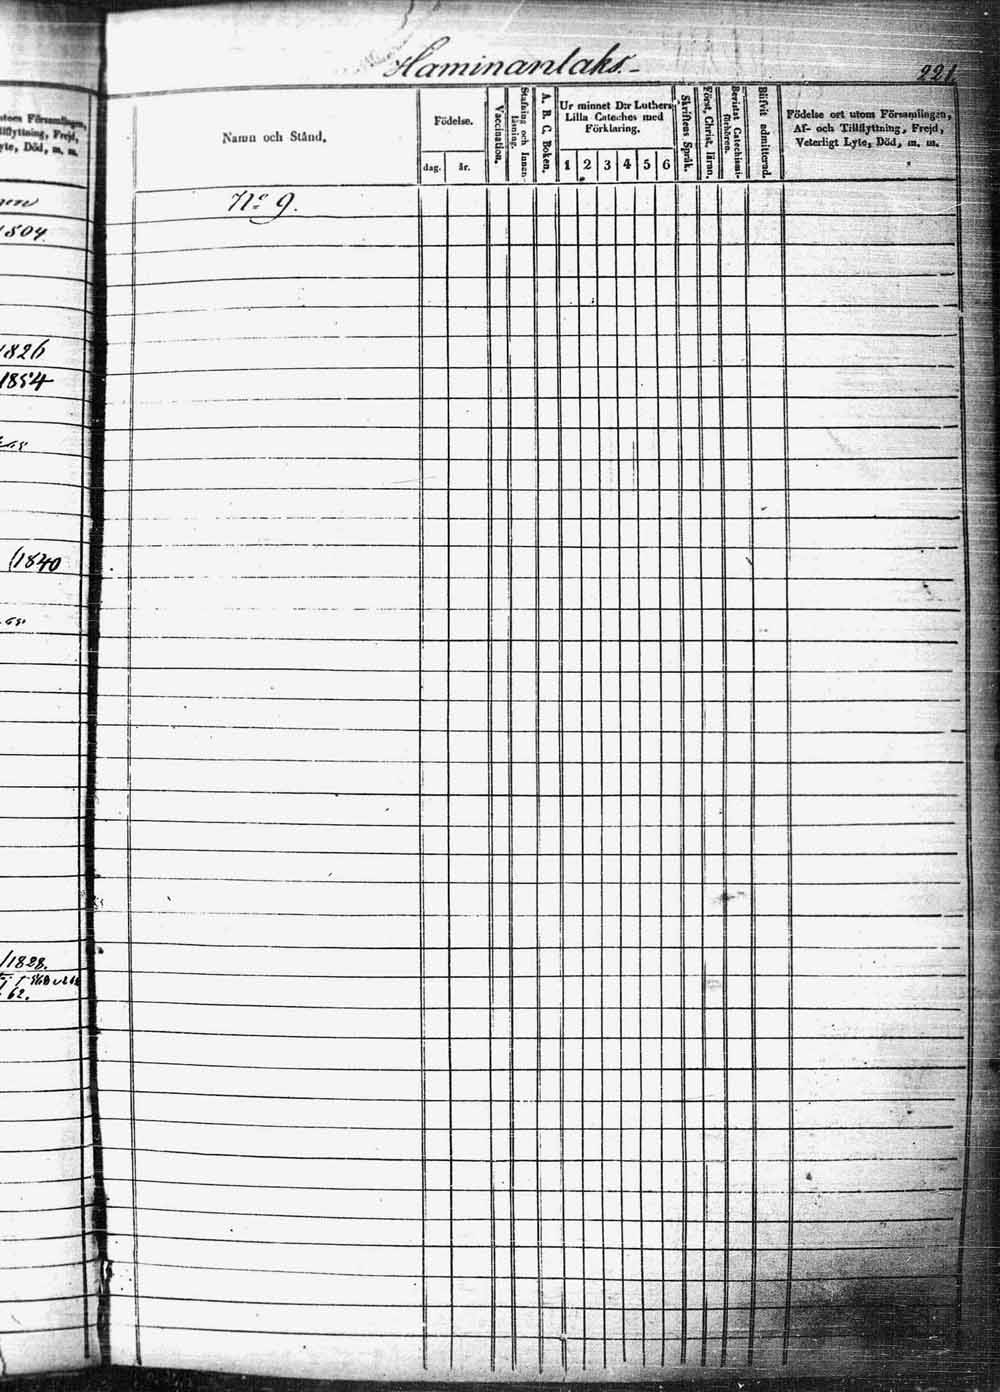 Haminanlaks.
221
Namn och Stånd.
Födelse.
dag.
år.
Vaccination.
Stafning och Innan-
läsning.
A. B. C. Boken.
Ur minnet D:r Luthers
Lilla Cateches med
Förklaring.
1 2 3 4 5 6
Skriftens Språk.
Först. Christ. läran.
Bevistat Catechismi-
förhören.
Blifvit admitterad.
Födelse ort utom Församlingen,
Af- och Tillflyttning, Frejd,
Veterligt Lyte, Död, m. m.
No 9.
utom Församlingen,
Tillflyttning, Frejd,
Lyte, Död, m. m.
1804
1826
1854
1840
1828.
62.